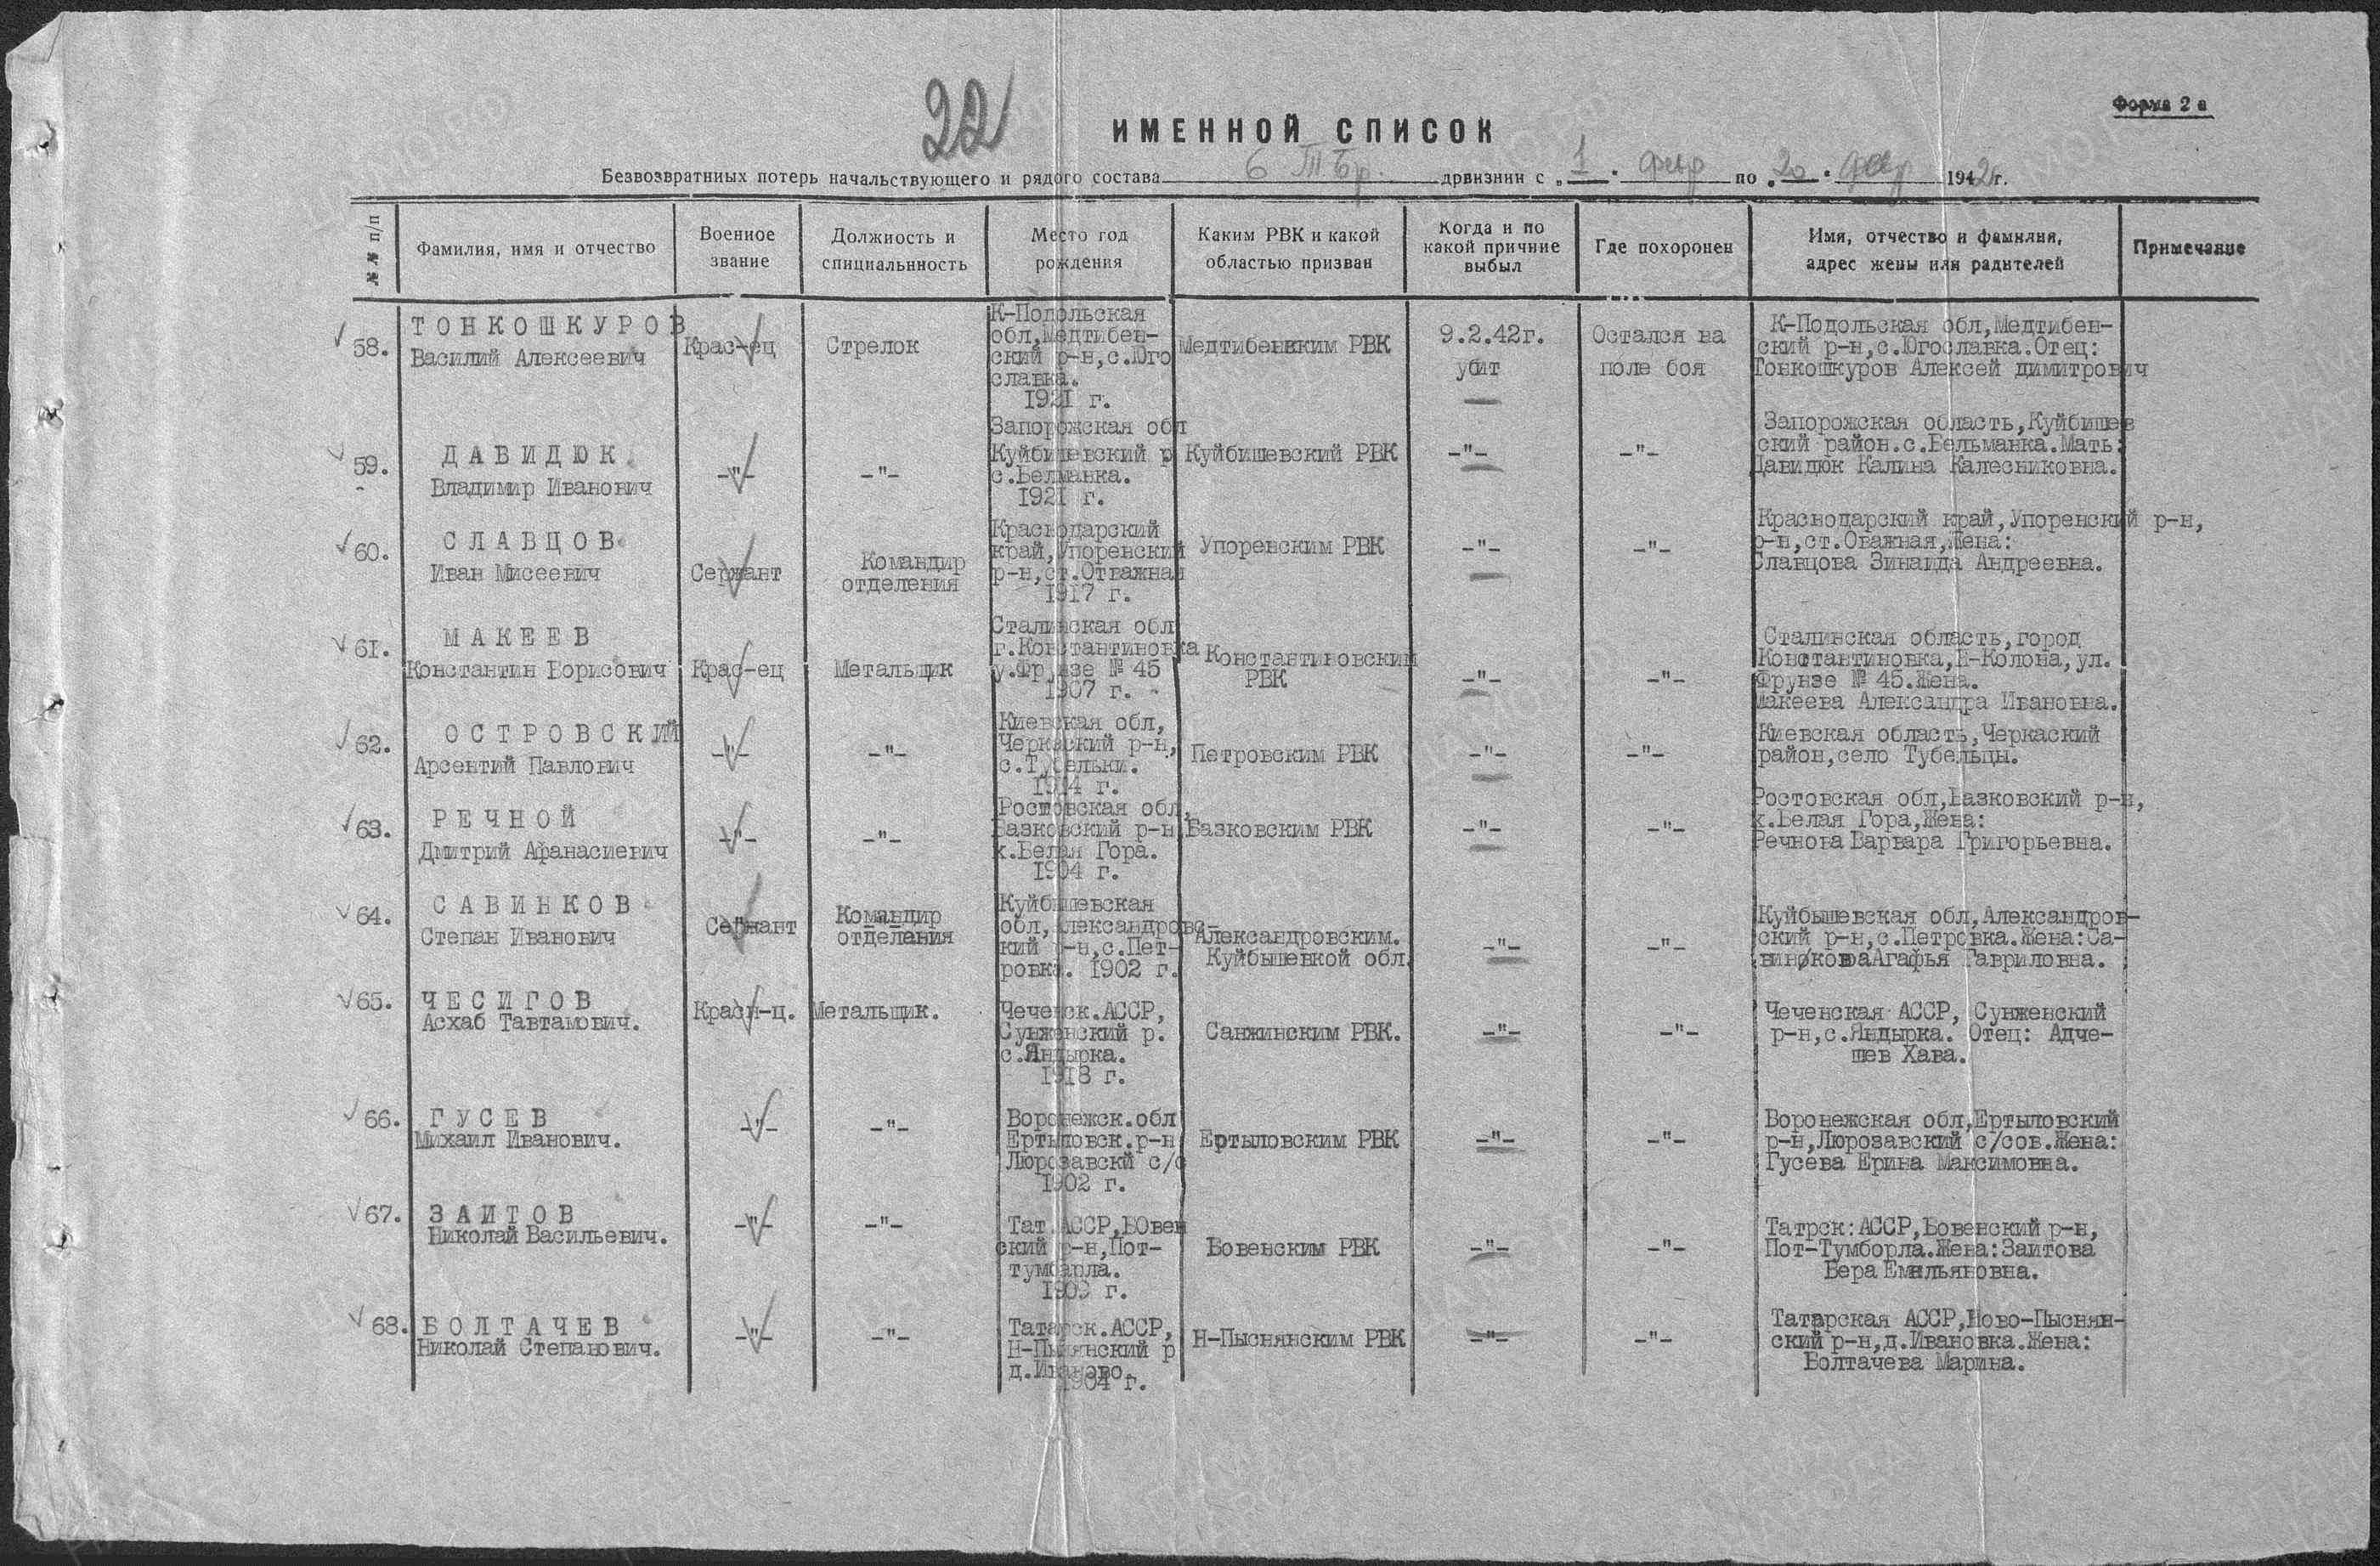 22
Форма 2 а
ИМЕННОЙ СПИСОК
Безвозвратниых потерь начальствующего и рядого состава 6 ТБр. дрвизнии с „1" фвр по „20" февр 1942 г.
№№ п/п
Фамилия, имя и отчество
Военное звание
Должность и специальнность
Место год рождения
Каким РВК и какой областью призван
Когда и по какой причине выбыл
Где похоронен
Имя, отчество и фамилия, адрес жены или радителей
Примечание
58.
ТОНКОШКУРОВ
Василий Алексеевич
Крас-ец
Стрелок
К-Подольская
обл,Медтибен-
ский р-н,с.Юго
славка.
1921 г.
Медтибенвким РВК
9.2.42г.
убит
Остался на
поле боя
К-Подольская обл,Медтибен-
ский р-н,с.Югославка.Отец:
Тонкошкуров Алексей димитрович
59.
ДАВИДЮК
Владимир Иванович
-"-
-"-
Запорожская обл
Куйбишевский р
с.Белманка.
1921 г.
Куйбишевский РВК
-"-
-"-
Запорожская область,Куйбишев
ский район.с.Бельманка.Мать:
Давидюк Калина Калесниковна.
60.
СЛАВЦОВ
Иван Мисеевич
Сержант
Командир
отделения
Краснодарский
край,Упоренский
р-н,ст.Отважная
1917 г.
Упоревским РВК
-"-
-"-
Краснодарский край,Упоренский р-н,
р-н,ст.Оважная,Жена:
Славцова Зинаида Андреевна.
61.
МАКЕЕВ
Константин Борисович
Крас-ец
Метальщик
Сталинская обл
г.Константиновка
у.Фрунзе № 45
1907 г.
Константиновским
РВК
-"-
-"-
Сталинская область,город
Константиновка,Н-Колона,ул.
Фрунзе № 45.Жена.
Макеева Александра Ивановна.
62.
ОСТРОВСКИЙ
Арсентий Павлович
-"-
-"-
Киевская обл,
Черкаский р-н,
с.Тубельки.
1914 г.
Петровским РВК
-"-
-"-
Киевская область,Черкаский
район,село Тубельцы.
63.
РЕЧНОЙ
Дмитрий Афанасиевич
-"-
-"-
Ростовская обл,
Базковский р-н
х.Белая Гора.
1904 г.
Базковским РВК
-"-
-"-
Ростовская обл,Базковский р-н,
х.Белая Гора,Жена:
Речнова Варвара Григорьевна.
64.
САВИНКОВ
Степан Иванович
Сержант
Командир
отделания
Куйбышевская
обл,Александровс-
кий р-н,с.Пет-
ровка. 1902 г.
Александровским.
Куйбышевкой обл.
-"-
-"-
Куйбышевская обл,Александров-
ский р-н,с.Петровка.Жена:Са-
винковаАгафья Гавриловна.
65.
ЧЕСИГОВ
Асхаб Тавтамович.
Красн-ц.
Метальщик.
Чеченск.АССР,
Сунженский р.
с.Яндырка.
1918 г.
Санжинским РВК.
-"-
-"-
Чеченская АССР, Сунженский
р-н,с.Яндырка. Отец: Адче-
шев Хава.
66.
ГУСЕВ
Михаил Иванович.
-"-
-"-
Воронежск.обл
Ертыловск.р-н
Люрозавскй с/с
1902 г.
Ертыловским РВК
-"-
-"-
Воронежская обл,Ертыловский
р-н,Люрозавский с/сов.Жена:
Гусева Ерина Максимовна.
67.
ЗАИТОВ
Николай Васильевич.
-"-
-"-
Тат.АССР,БОвен
ский р-н,Пот-
тумбарла.
1909 г.
Бовенским РВК
-"-
-"-
Татрск:АССР,Бовенский р-н,
Пот-Тумборла.Жена:Заитова
Вера Емильяновна.
68.
БОЛТАЧЕВ
Николай Степанович.
-"-
-"-
Татарск.АССР,
Н-Пыснянский р
д.Иваново.
1904 г.
Н-Пыснянским РВК
-"-
-"-
Татарская АССР,Ново-Пыснян-
ский р-н,д.Ивановка.Жена:
Болтачева Марина.